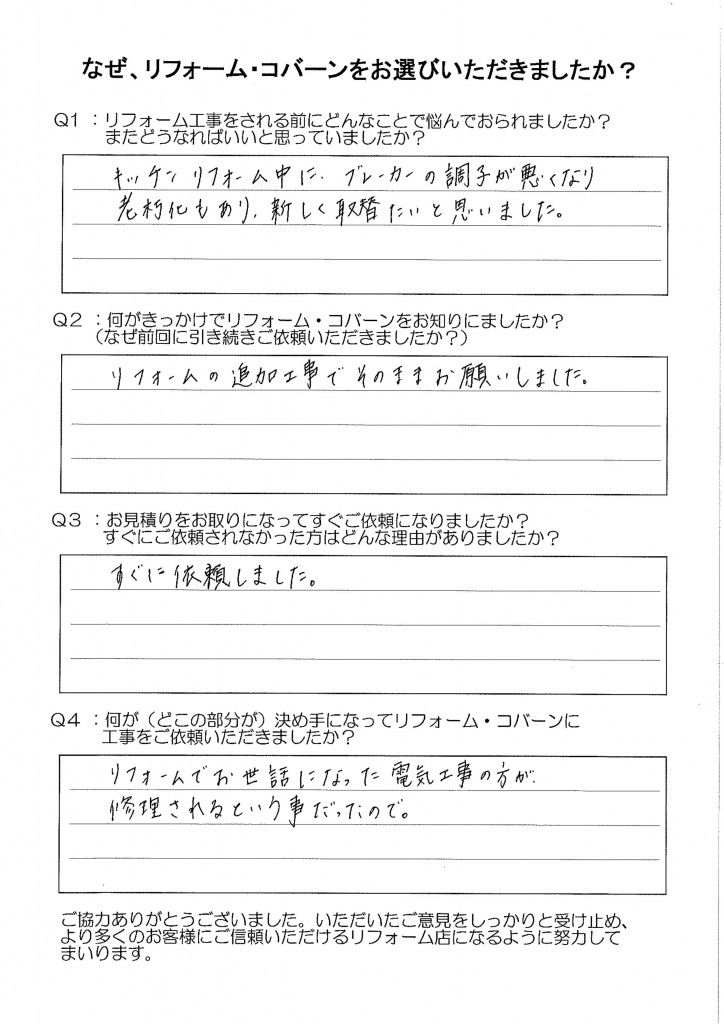 なぜ、リフォーム・コバーンをお選びいただきましたか？
Q1 ：リフォーム工事をされる前にどんなことで悩んでおられましたか？
またどうなればいいと思っていましたか？
キッチンリフォーム中に、ブレーカーの調子が悪くなり
老朽化もあり、新しく取替たいと思いました。
Q2 ：何がきっかけでリフォーム・コバーンをお知りにましたか？
（なぜ前回に引き続きご依頼いただきましたか？）
リフォームの追加工事でそのままお願いしました。
Q3 ：お見積りをお取りになってすぐご依頼になりましたか？
すぐにご依頼されなかった方はどんな理由がありましたか？
すぐに依頼しました。
Q4 ：何が（どこの部分が）決め手になってリフォーム・コバーンに
工事をご依頼いただきましたか？
リフォームでお世話になった電気工事の方が、
修理されるという事だったので。
ご協力ありがとうございました。いただいたご意見をしっかりと受け止め、
より多くのお客様にご信頼いただけるリフォーム店になるように努力して
まいります。